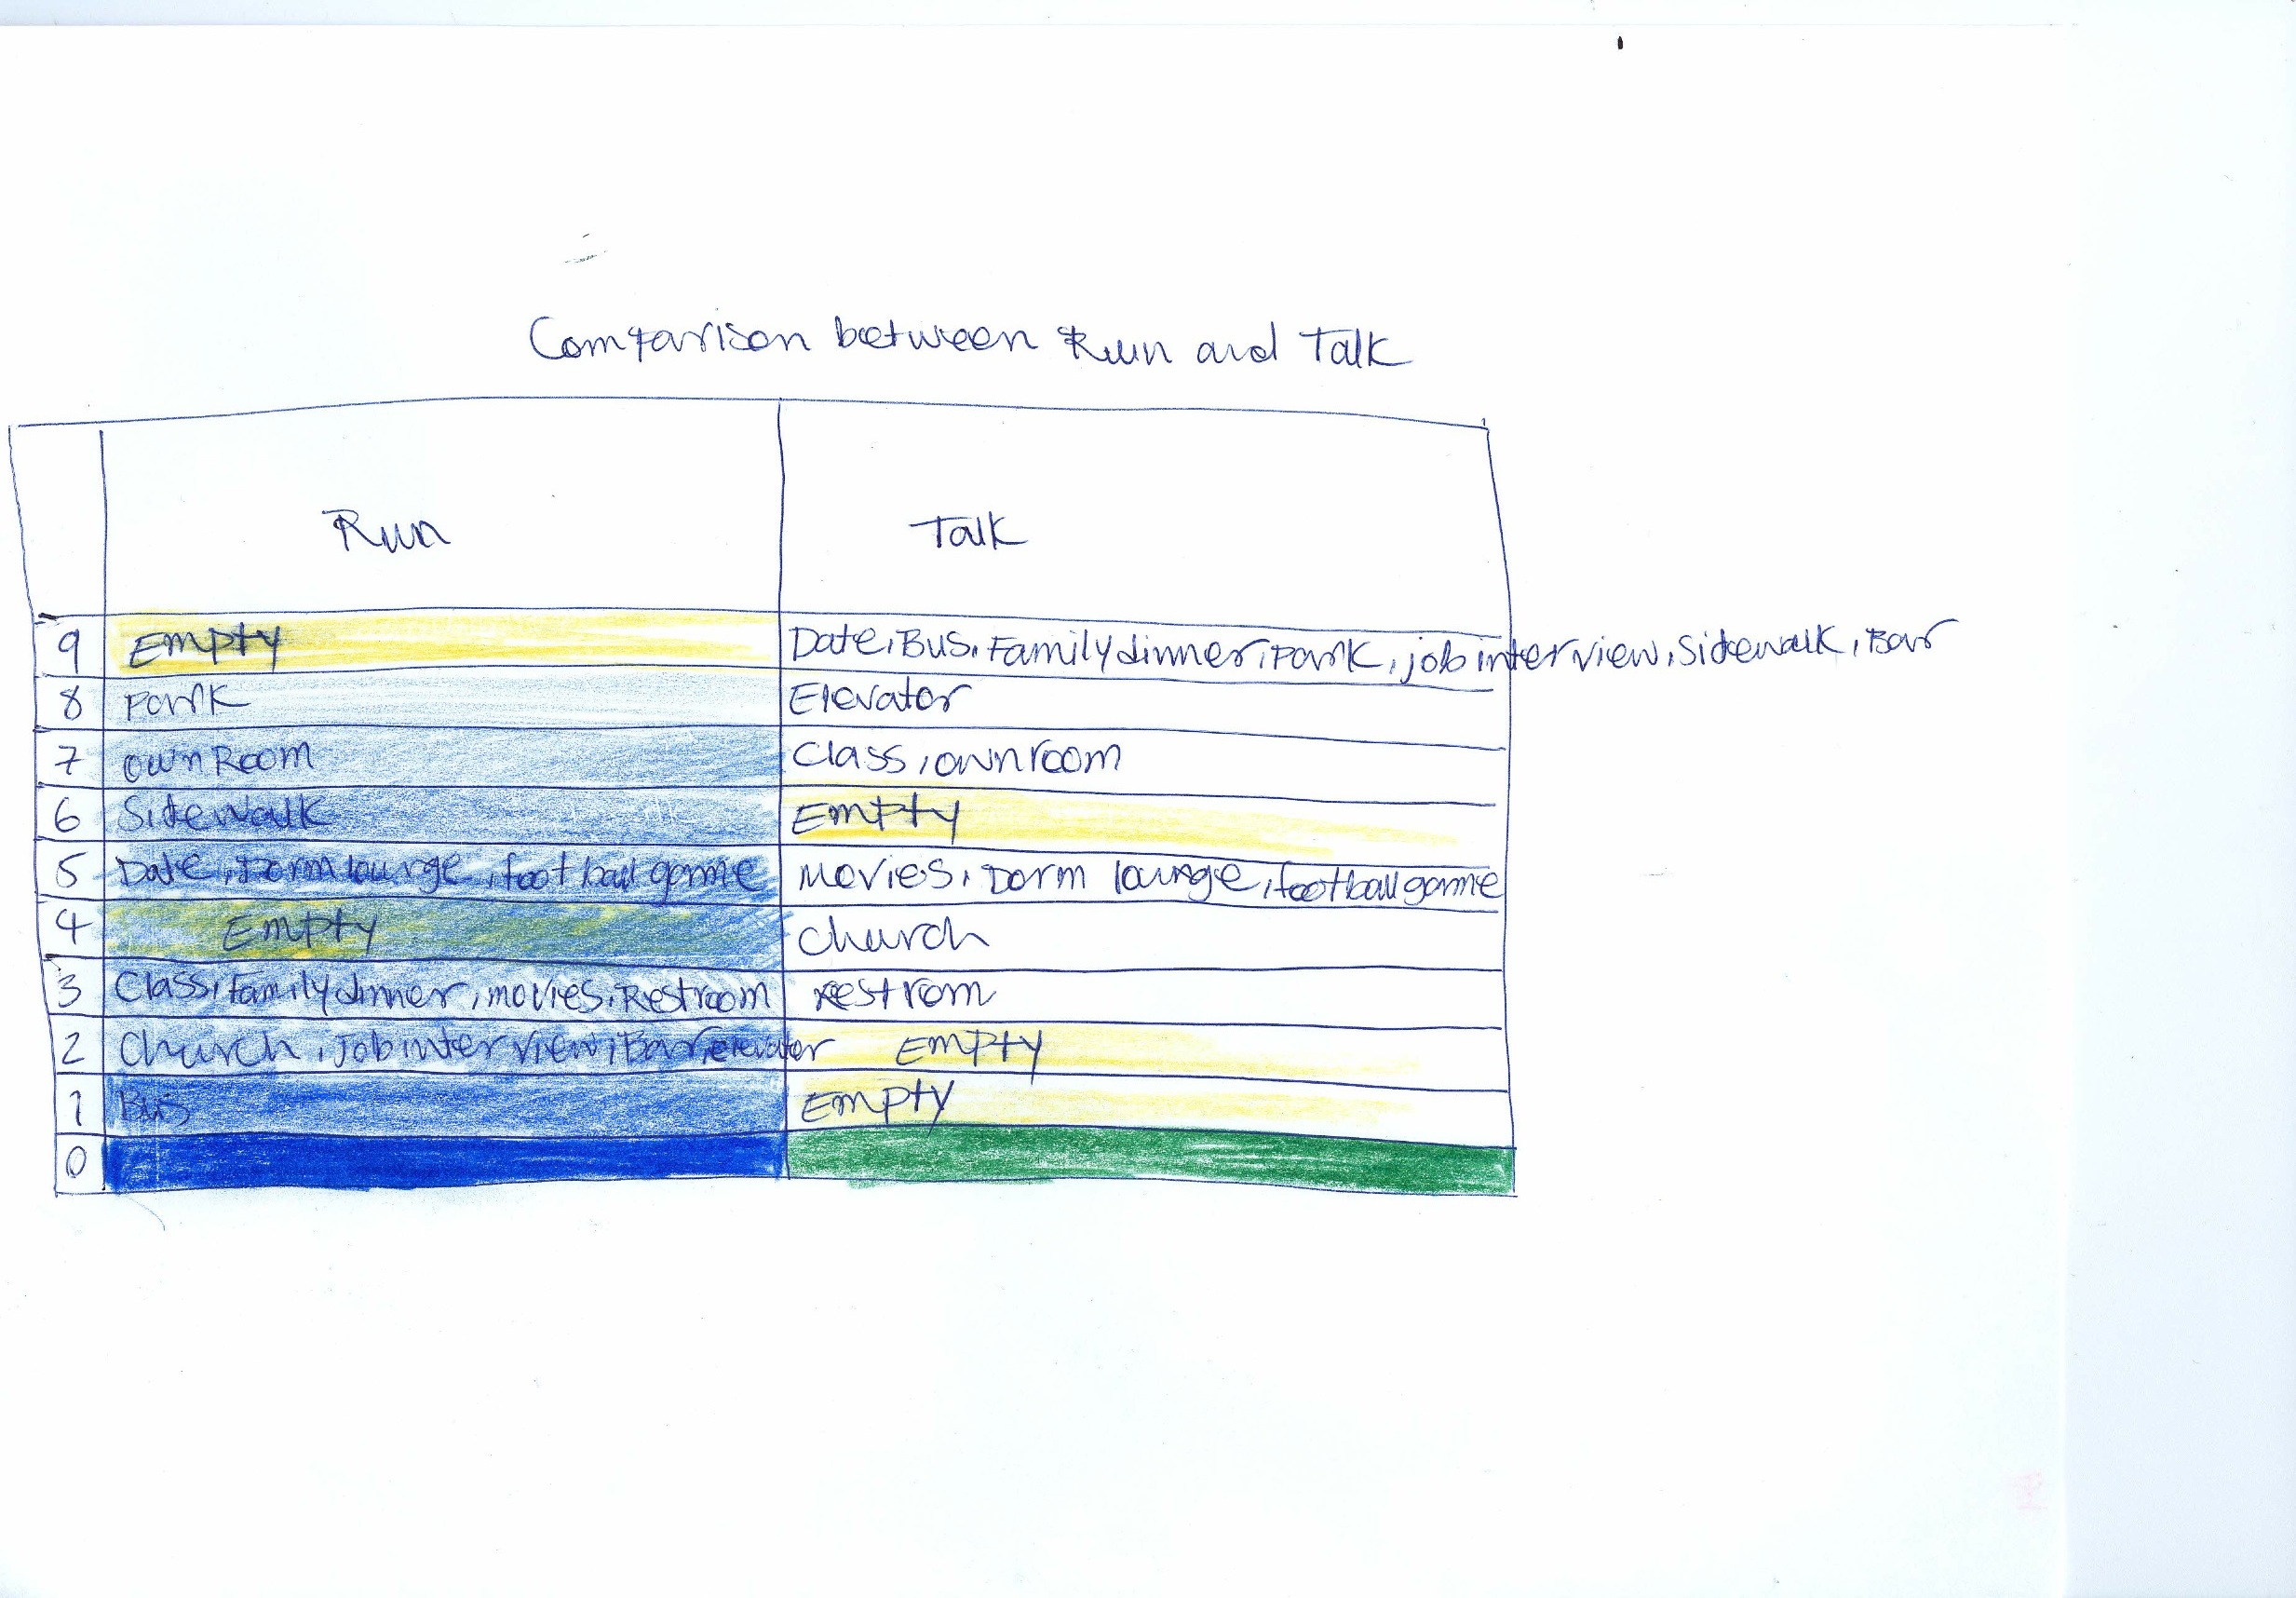 Comparison between Run and Talk
Run Talk
9 Empty Date, Bus, Family dinner, Park, job interview, Sidewalk, Bar
8 Park Elevator
7 own Room Class, own room
6 Sidewalk Empty
5 Date, Dorm lounge, football game Movies, Dorm lounge, football game
4 Empty Church
3 Class, family dinner, movies, Restroom Restrom
2 Church, Job interview, Bar, elevator Empty
1 Bus Empty
0